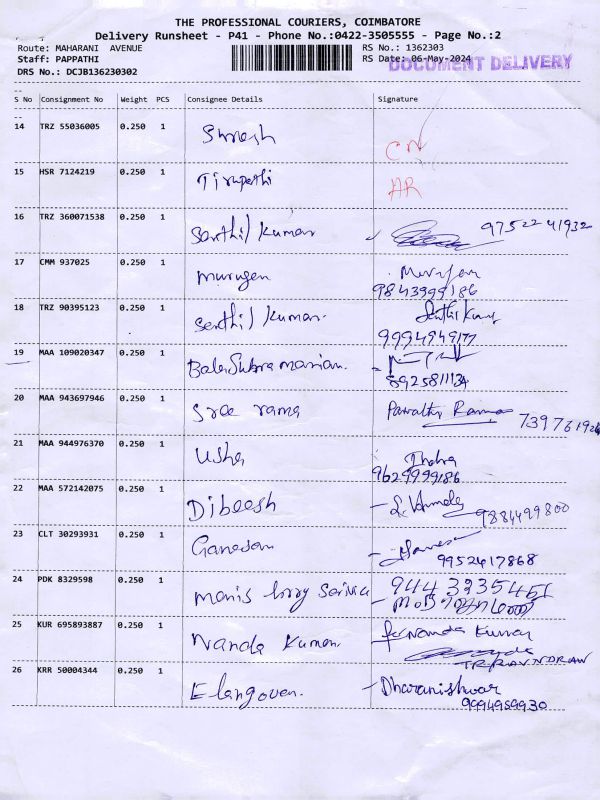 THE PROFESSIONAL COURIERS, COIMBATORE
Delivery Runsheet - P41 - Phone No.:0422-3505555 - Page No.:2
Route: MAHARANI AVENUE RS No.: 1362303
Staff: PAPPATHI RS Date: 06-May-2024
DOCUMENT DELIVERY
DRS No.: DCJB136230302
S No Consignment No Weight PCS Consignee Details Signature
14 TRZ 55036005 0.250 1 Suresh
15 HSR 7124219 0.250 1 Tirupathi AR
16 TRZ 360071538 0.250 1 Senthil Kumar 9752241932
17 CMM 937025 0.250 1 murugen Murugan
9843999186
18 TRZ 90395123 0.250 1 Senthil Kumar. Senthil Kumar
9994949177
19 MAA 109020347 0.250 1 BalaSubramanian.
8925811134
20 MAA 943697946 0.250 1 Sree rama
21 MAA 944976370 0.250 1 Usha
9629999186
22 MAA 572142075 0.250 1 Dibeesh
9884499800
23 CLT 30293931 0.250 1 Ganesan
9952417868
24 PDK 8329598 0.250 1
25 KUR 695893887 0.250 1 Nanda Kumar.
26 KRR 50004344 0.250 1 Elangoven. Dharanishwar